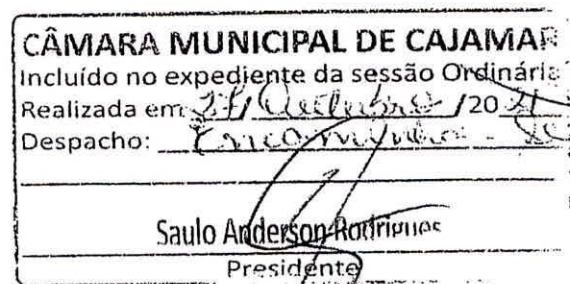 CÂMARA MUNICIPAL DE CAJAMAR
Incluído no expediente da sessão Ordinária
Realizada em 27/ Outubro /2021
Despacho: Encaminha - se
Saulo Anderson Rodrigues
Presidente